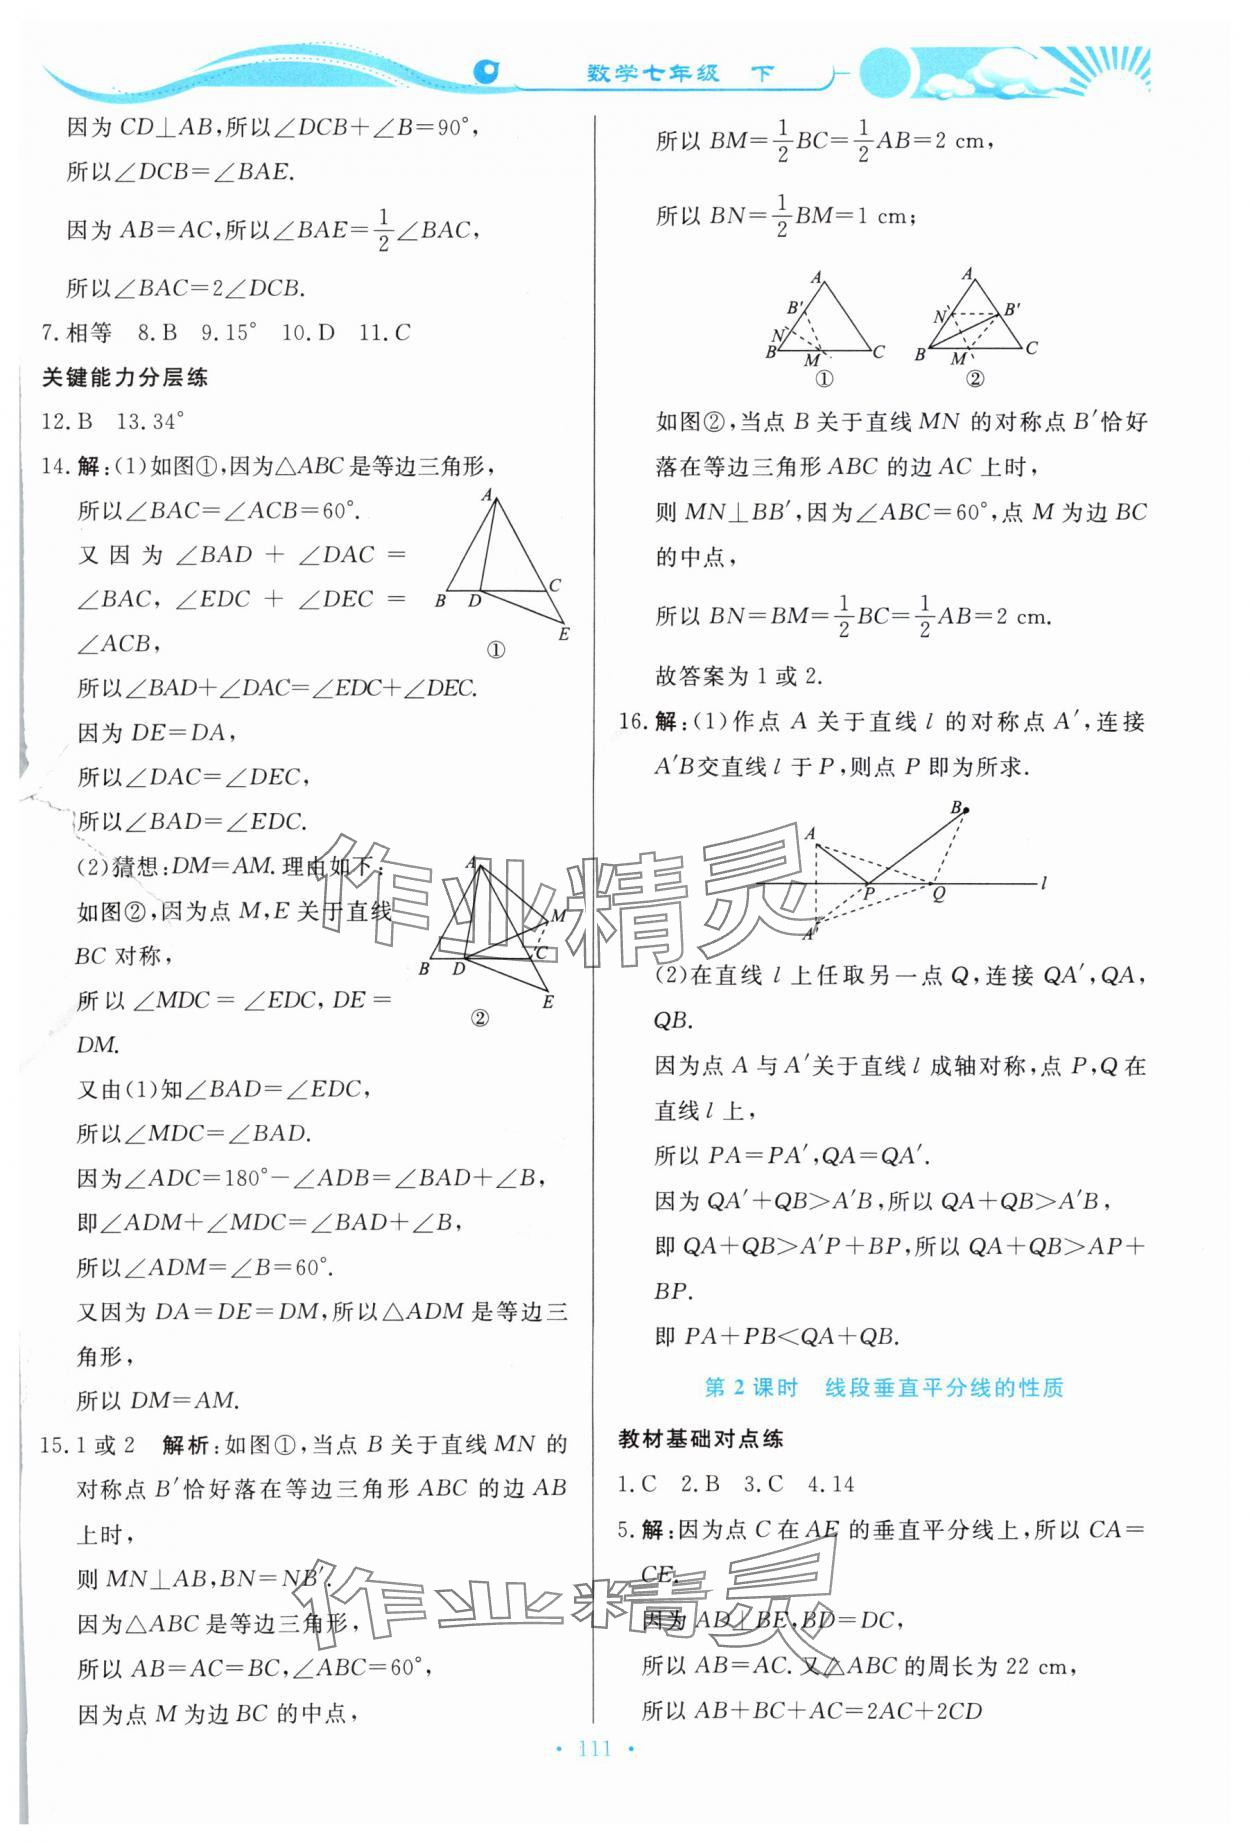 数学七年级 下
因为 CD⊥AB,所以∠DCB+∠B=90°,
所以∠DCB=∠BAE.
因为 AB=AC,所以∠BAE=1/2∠BAC,
所以∠BAC=2∠DCB.
7.相等 8.B 9.15° 10.D 11.C
关键能力分层练
12.B 13.34°
14.解:(1)如图①,因为△ABC是等边三角形,
所以∠BAC=∠ACB=60°.
又因为∠BAD+∠DAC=
∠BAC,∠EDC+∠DEC=
∠ACB,
A
B D C
E
①
所以∠BAD+∠DAC=∠EDC+∠DEC.
因为 DE=DA,
所以∠DAC=∠DEC,
所以∠BAD=∠EDC.
(2)猜想:DM=AM.理由如下:
如图②,因为点 M,E 关于直线
BC 对称,
所以∠MDC=∠EDC,DE=
DM.
A
M
B D C
E
②
又由(1)知∠BAD=∠EDC,
所以∠MDC=∠BAD.
因为∠ADC=180°-∠ADB=∠BAD+∠B,
即∠ADM+∠MDC=∠BAD+∠B,
所以∠ADM=∠B=60°.
又因为 DA=DE=DM,所以△ADM 是等边三
角形,
所以 DM=AM.
15.1 或 2 解析:如图①,当点 B 关于直线 MN 的
对称点 B′恰好落在等边三角形 ABC 的边 AB
上时,
则 MN⊥AB,BN=NB′.
因为△ABC 是等边三角形,
所以 AB=AC=BC,∠ABC=60°,
因为点 M 为边 BC 的中点,
所以 BM=1/2BC=1/2AB=2 cm,
所以 BN=1/2BM=1 cm;
A
B′
N
B M C
①
A
N B′
B M C
②
如图②,当点 B 关于直线 MN 的对称点 B′恰好
落在等边三角形 ABC 的边 AC 上时,
则 MN⊥BB′,因为∠ABC=60°,点 M 为边 BC
的中点,
所以 BN=BM=1/2BC=1/2AB=2 cm.
故答案为 1 或 2.
16.解:(1)作点 A 关于直线 l 的对称点 A′,连接
A′B交直线 l 于 P,则点 P 即为所求.
B
A
P Q l
A′
(2)在直线 l 上任取另一点 Q,连接 QA′,QA,
QB.
因为点 A 与 A′关于直线 l 成轴对称,点 P,Q 在
直线 l 上,
所以 PA=PA′,QA=QA′.
因为 QA′+QB>A′B,所以 QA+QB>A′B,
即 QA+QB>A′P+BP,所以 QA+QB>AP+
BP.
即 PA+PB<QA+QB.
第 2 课时 线段垂直平分线的性质
教材基础对点练
1.C 2.B 3.C 4.14
5.解:因为点 C 在 AE 的垂直平分线上,所以 CA=
CE.
因为 AD⊥BE,BD=DC,
所以 AB=AC.又△ABC 的周长为 22 cm,
所以 AB+BC+AC=2AC+2CD
·111·
作业精灵
作业精灵